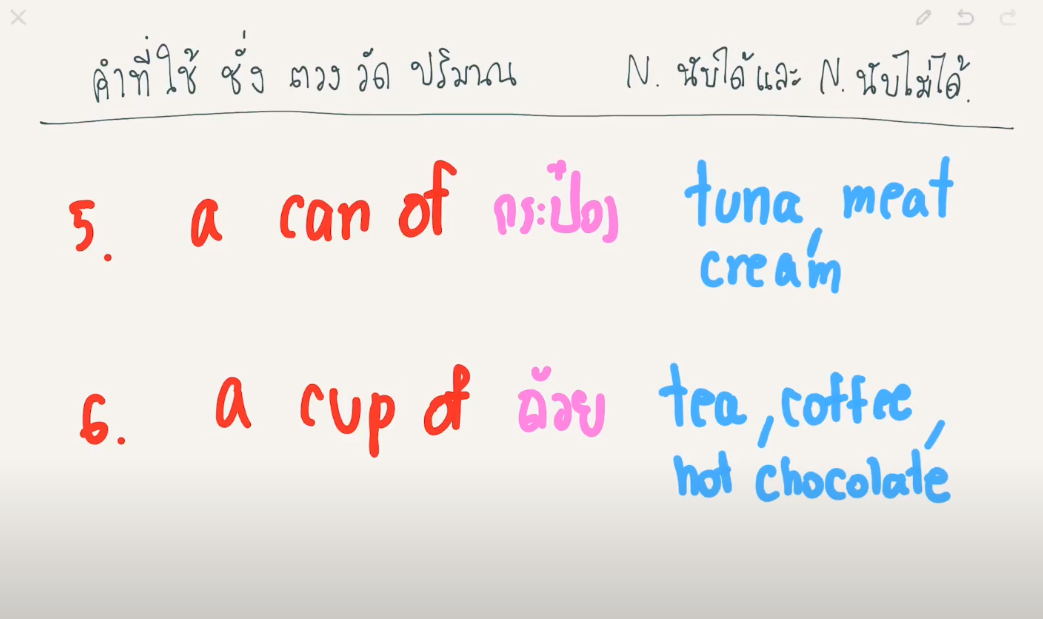 คำที่ใช้ ชั่ง ตวง วัด ปริมาณ N. นับได้ และ N. นับไม่ได้.
5. a can of กระป๋อง tuna, meat
cream
6. a cup of ถ้วย tea, coffee,
hot chocolate